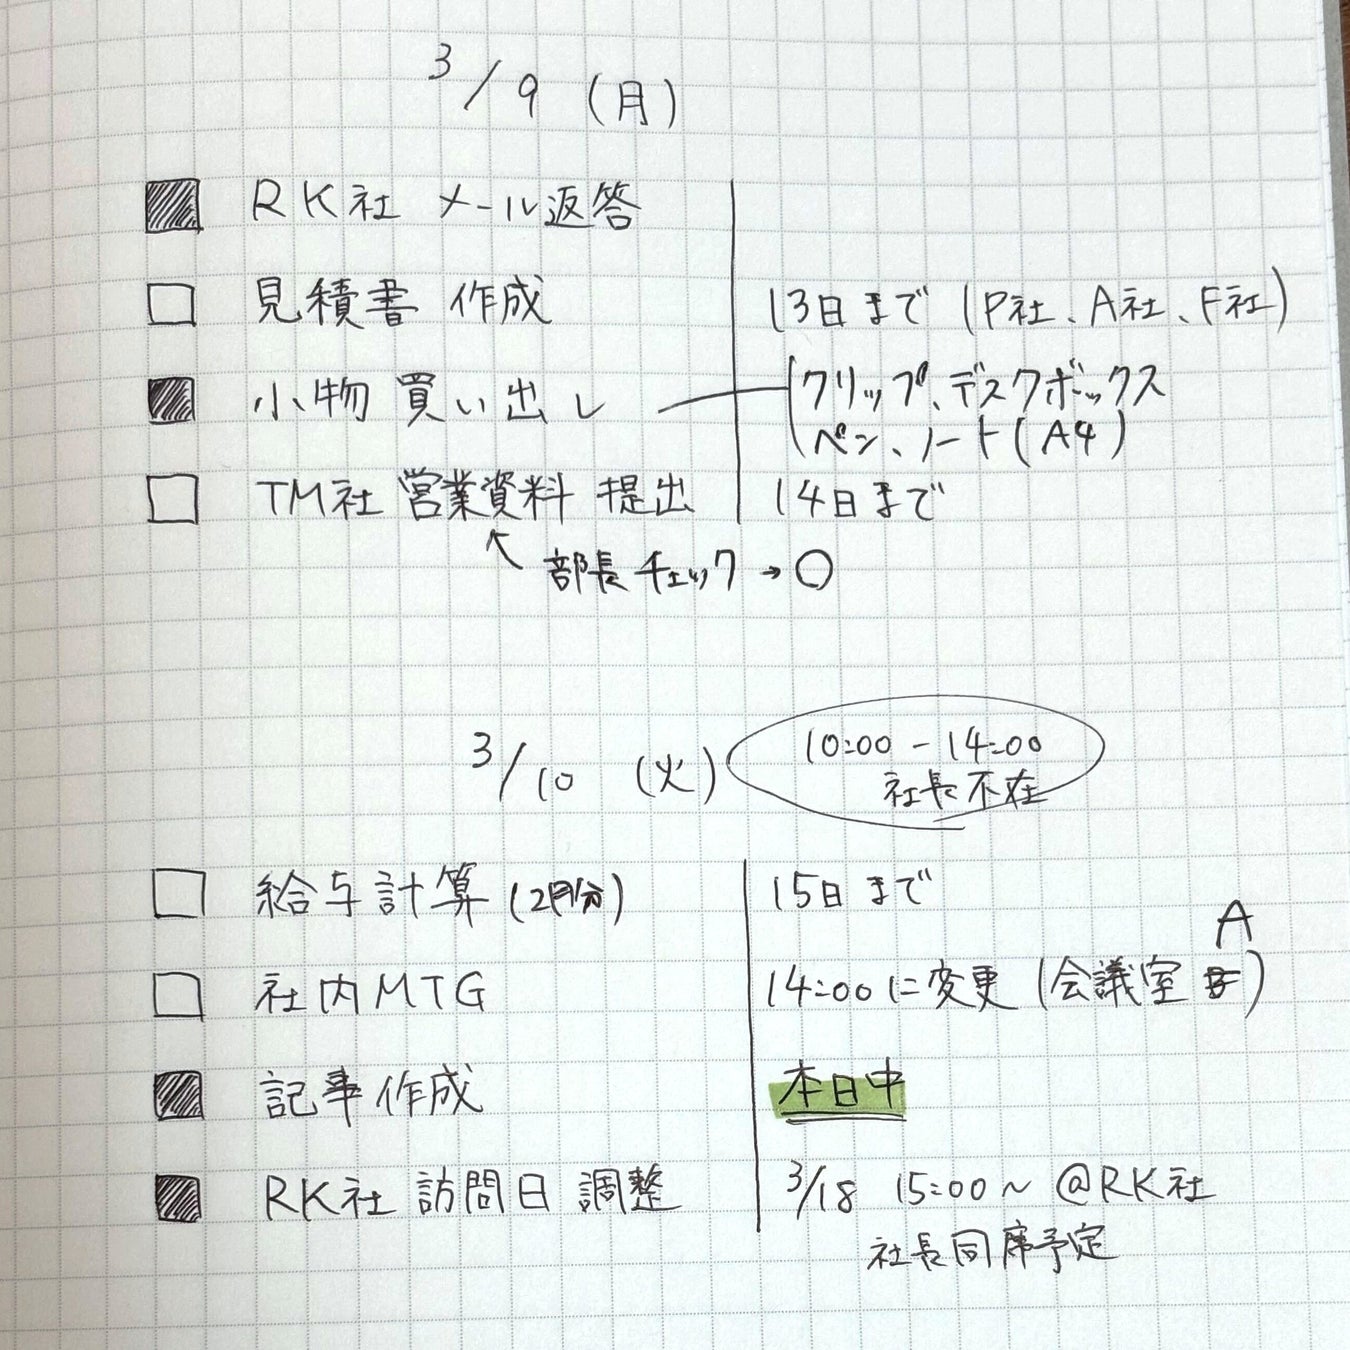 3/9 (月)
RK社 メール返答
見積書 作成 13日まで (P社、A社、F社)
小物 買い出し クリップ、デスクボックス
ペン、ノート(A4)
TM社 営業資料 提出 14日まで
部長チェック→○
3/10 (火) 10:00-14:00
社長不在
給与計算(2月分) 15日まで
A
社内MTG 14:00に変更 (会議室 )
記事作成 本日中
RK社 訪問日 調整 3/18 15:00~ @RK社
社長同席予定